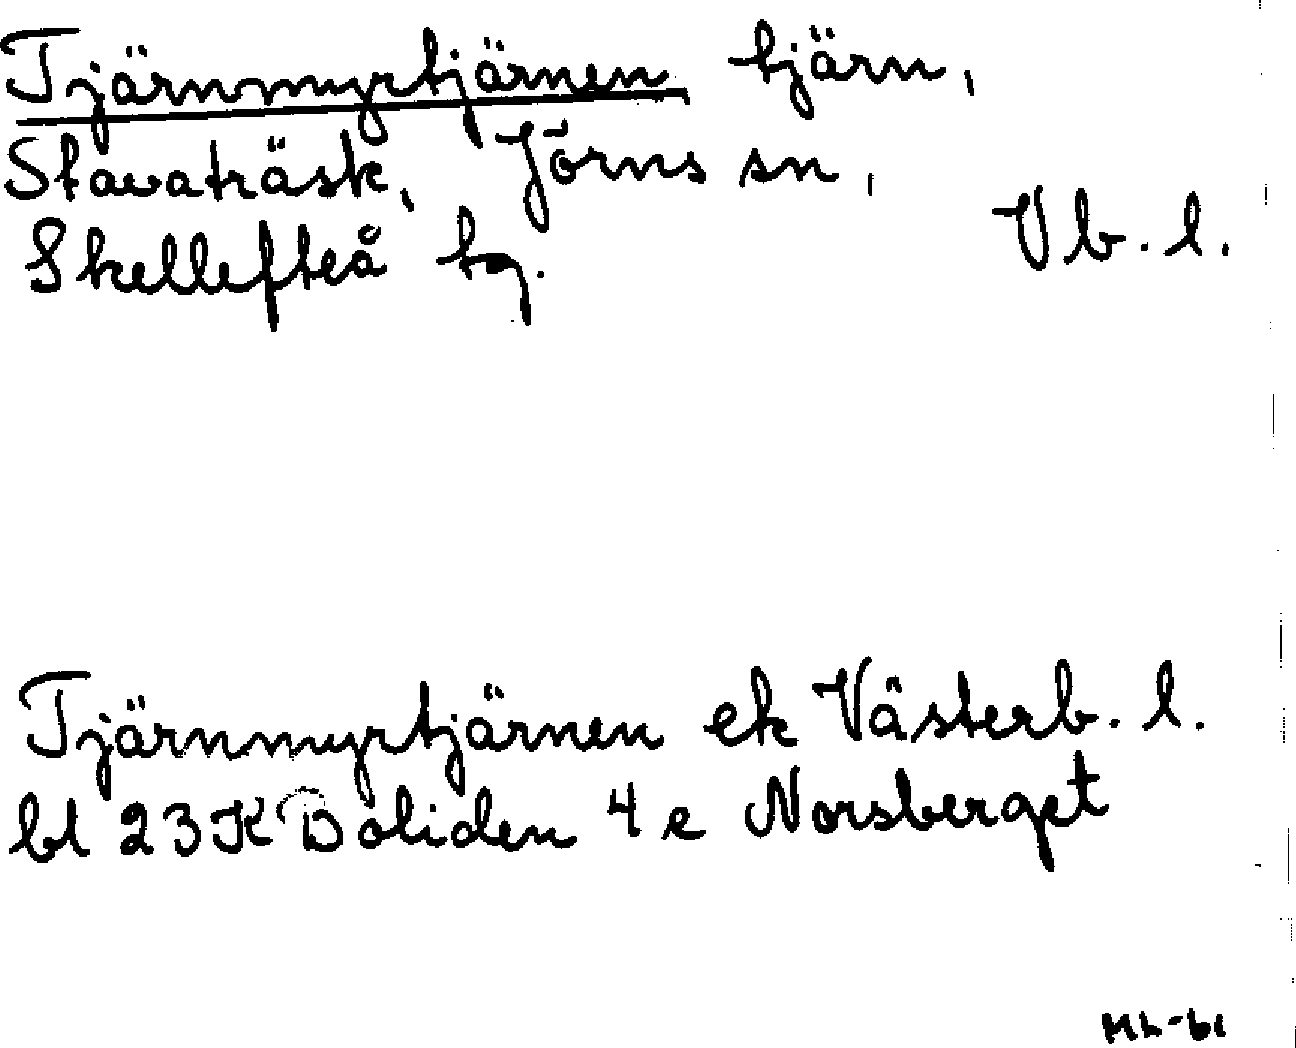 Tjärnmyrtjärnen tjärn,
Stavaträsk, Jörns sn,
Skellefteå tg. Vb. l.
Tjärnmyrtjärnen ek Västerb. l.
bl 23K Boliden 4e Norsberget